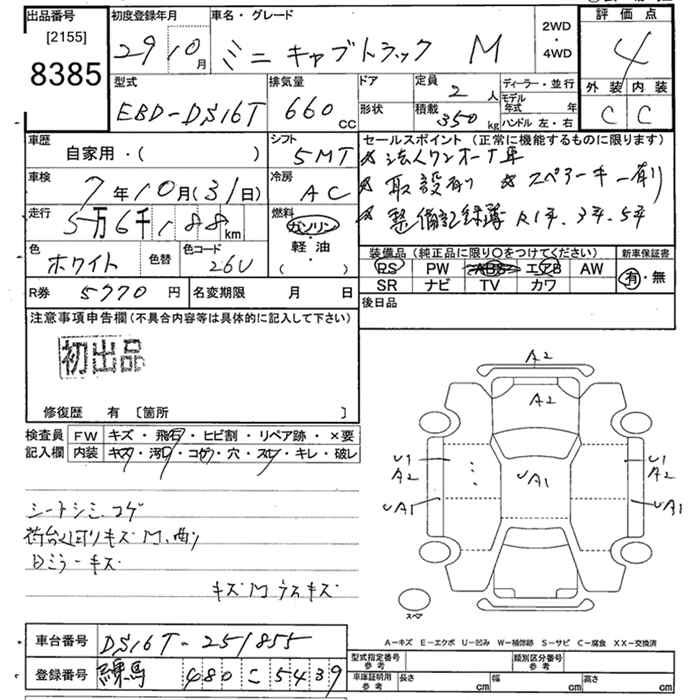 出品番号 初度登録年月 車名・グレード 2WD・4WD 評価点
[2155]
8385
29 10月 ミニキャブトラック M 4
型式 排気量 ドア 定員 2人 ディーラー・並行 外装 内装
EBD-DS16T 660cc 形状 積載 350kg モデル年式 年 C C
ハンドル 左・右
車歴 シフト セールスポイント (正常に機能するものに限ります)
自家用・( ) 5MT ★ 法人ワンオーナ車
車検 冷房 ★ 取説有り ★ スペアーキー有り
7年10月(31日) AC
走行 燃料 ★ 整備記録簿 R1年.3年.5年
5万6千188km ガソリン・軽・油( )
色 色替 色コード 装備品 (純正品に限り○をつけてください) 新車保証書
ホワイト 26U PS PW ABS エアB AW 有・無
SR ナビ TV カワ
R券 5770円 名変期限 月 日 後日品
注意事項申告欄 (不具合内容等は具体的に記入して下さい)
初出品
修復歴 有 [箇所 ]
検査員記入欄 FW キズ・飛石・ヒビ割・リペア跡・×要
内装 キズ・汚れ・コゲ・穴・スレ・キレ・破レ
シートシミ.コゲ
荷台凹リキズM.曲り
日ミラーキズ
キズM ウスキズ
A2
A2
U1 A2 U1 A2
UA1 UA1 UA1
スペア
A-キズ E-エクボ U-凹み W-補修跡 S-サビ C-腐食 XX-交換済
車台番号 DS16T-251855
型式指定番号参考 類別区分番号参考
登録番号 練馬 480 こ 5439
車庫証明用参考 長さ cm 幅 cm 高さ cm